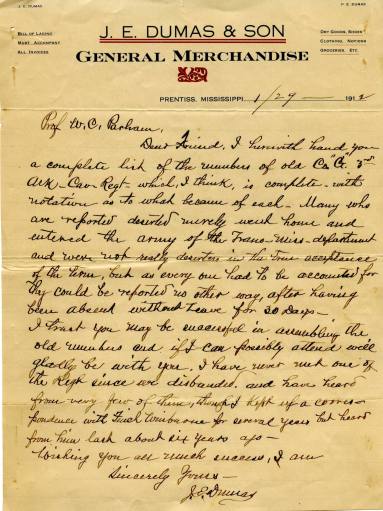 J. E. DUMAS
P. E. DUMAS
J. E. DUMAS & SON
BILL OF LADING
MUST ACCOMPANY
ALL INVOICES
DRY GOODS, SHOES
CLOTHING, NOTIONS
GROCERIES, ETC.
GENERAL MERCHANDISE
PRENTISS, MISSISSIPPI 1/29 1912
Prof W. C. Parham,
Dear Friend, I herewith hand you
a complete list of the members of old Co "G" 3rd
Ark - Cav - Regt - which, I think, is complete - with
notation as to what became of each - Many who
are reported deserted merely went home and
entered the army of the Trans-Miss-department
and were not really deserters in the true acceptance
of the term, but as every one had to be accounted for
they could be reported no other way, after having
been absent without leave for 30 days -
I trust you may be successful in assembling the
old members and if I can possibly attend will
gladly be with you. I have never met one of
the Regt since we disbanded, and have heard
from very few of them, tho I kept up a corres-
pondence with for several years but heard
from him last about six years ago -
Wishing you all much success, I am
Sincerely Yours -
J. E. Dumas